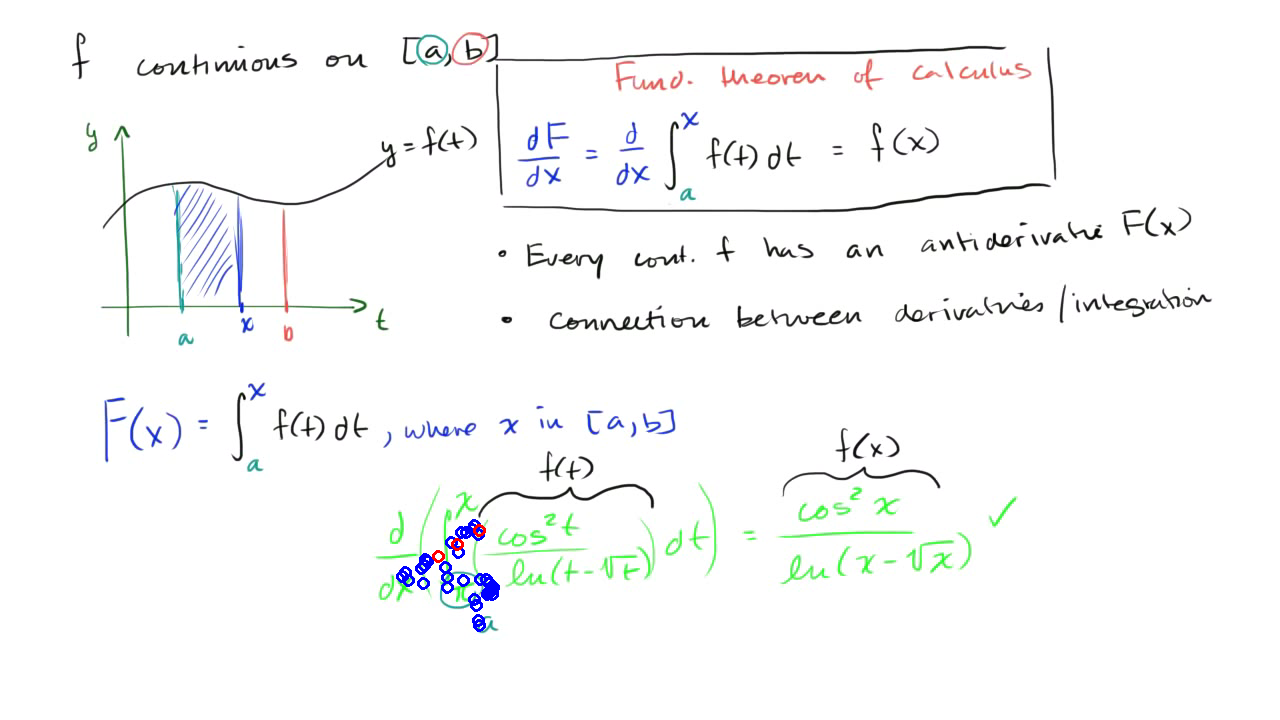 f continuous on [a, b]
Fund. theorem of calculus
dF/dx = d/dx ∫_a^x f(t) dt = f(x)
y
y = f(t)
a x b t
• Every cont. f has an antiderivative F(x)
• connection between derivatives/integration
F(x) = ∫_a^x f(t) dt, where x in [a, b]
f(t) f(x)
d/dx (∫_π^x (cos²t / ln(t-√t)) dt) = cos² x / ln(x-√x) ✓
a